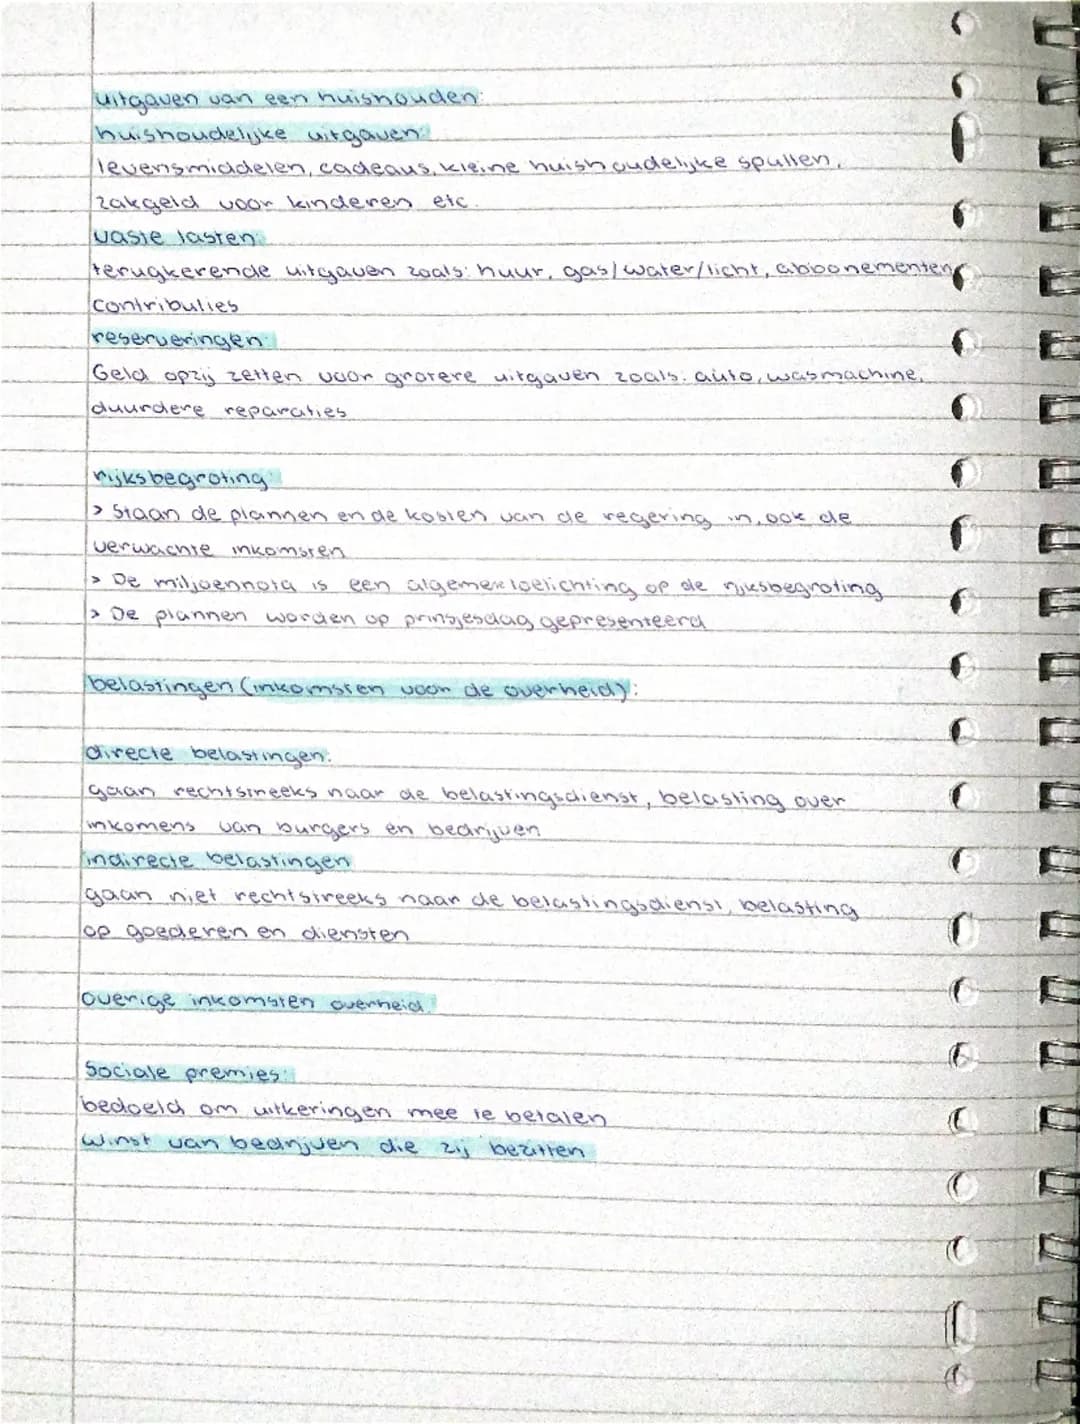 uitgaven van een huishouden:
huishoudelijke uitgaven:
levensmiddelen, cadeaus, kleine huishoudelijke spullen,
zakgeld voor kinderen etc.
vaste lasten:
terugkerende uitgaven zoals: huur, gas/water/licht, abbonementen
contributies
reserveringen:
Geld opzij zetten voor grotere uitgaven zoals: auto, wasmachine,
duurdere reparaties
rijksbegroting:
> Staan de plannen en de kosten van de regering in, ook de
verwachte inkomsten
> De miljoennota is een algemene toelichting op de rijksbegroting
> De plannen worden op prinsjesdag gepresenteerd
belastingen (inkomsten voor de overheid):
directe belastingen:
gaan rechtstreeks naar de belastingsdienst, belasting over
inkomens van burgers en bedrijven
indirecte belastingen
gaan niet rechtstreeks naar de belastingsdienst, belasting
op goederen en diensten
overige inkomsten overheid:
Sociale premies:
bedoeld om uitkeringen mee te betalen
Winst van bedrijven die zij bezitten